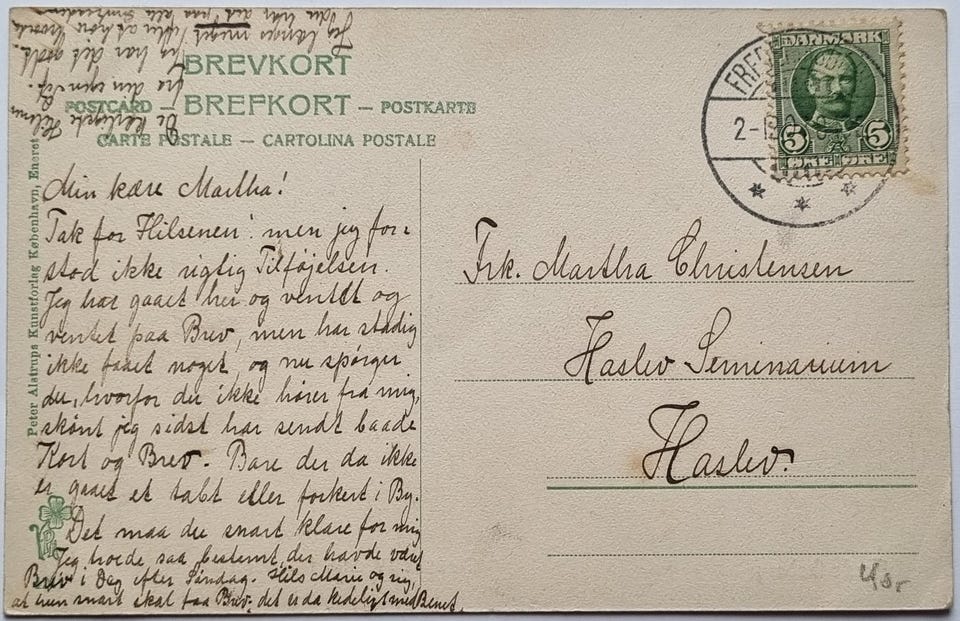 BREVKORT
POSTCARD – BREFKORT – POSTKARTE
CARTE POSTALE – CARTOLINA POSTALE
Peter Alstrups Kunstforlag København, Eneret
DANMARK
5 5
ØRE ØRE
2-
Min kære Martha!
Tak for Hilsenen! men jeg for-
stod ikke rigtig Tilføjelsen.
Jeg har gaaet her og ventet og
ventet paa Brev, men har stadig
ikke faaet noget, og nu spørger
du, hvorfor du ikke hører fra mig,
skønt jeg sidst har sendt baade
Kort og Brev. Bare der da ikke
er gaaet et tabt eller forkert i By.
Det maa du snart klare for mig
Jeg troede saa bestemt, der havde været
Brev i Dag efter Søndag. Hils Marie og sig,
at hun snart skal faa Brev, det er da kedeligt med Benet.
Jeg længes meget efter at høre, hvordan
du har det paa alle
Jeg har det godt.
De kærligste Hilsner
fra din egen
Frk. Martha Christensen
Haslev Seminarium
Haslev.